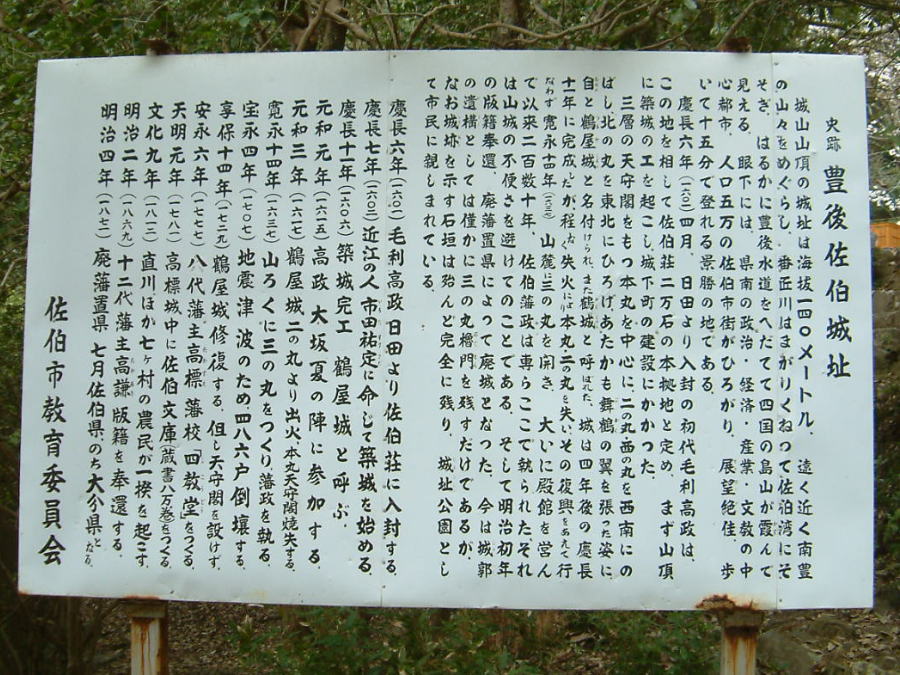 史跡 豊後佐伯城址
城山山頂の城址は海抜一四〇メートル、遠く近く南豊
の山々をめぐらし、番匠川はまがりくねって佐伯湾にそ
そぎ、はるかに豊後水道をへだてて四国の島山が霞んで
見える。眼下には、県南の政治・経済・産業・文教の中
心都市、人口五万の佐伯市街がひろがり、展望絶佳、歩
いて十五分で登れる景勝の地である。
慶長六年(一六〇一)四月、日田より入封の初代毛利高政は、
この地を相して佐伯荘二万石の本拠地と定め、まず山頂
に築城の工を起こし、城下町の建設にかかった。
三層の天守閣をもつ本丸を中心に、二の丸西の丸を西南にの
ばし北の丸を東北にひろげ、あたかも舞鶴の翼を張った姿に
自と鶴屋城と名付けられ、また鶴城と呼ばれた、城は四年後の慶長
十一年に完成したが程なく失火により本丸二の丸を失い、その復興をあえて行
なわず寛永十四年(一六三七)山麓に三の丸を開き、大いに殿館を営ん
で以来二百数十年、佐伯藩政は専らここで執られた。それ
は山城の不便さを避けてのことである。そして明治初年
の版籍奉還、廃藩置県によって廃城となった。今は城郭
の遺構としては僅かに三の丸櫓門を残すだけであるが、
なお城跡を示す石垣は殆んど完全に残り、城址公園とし
て市民に親しまれている。
慶長六年(一六〇一)毛利高政日田より佐伯荘に入封する。
慶長七年(一六〇二)近江の人市田祐定に命じて築城を始める。
慶長十一年(一六〇六)築城完工 鶴屋城と呼ぶ
元和元年(一六一五)高政 大坂夏の陣に参加する
元和三年(一六一七)鶴屋城二の丸より出火、本丸天守閣焼失する。
寛永十四年(一六三七)山ろくに三の丸をつくり、藩政を執る。
宝永四年(一七〇七)地震津波のため四八六戸倒壊する。
享保十四年(一七二九)鶴屋城修復する、但し天守閣を設けず。
安永六年(一七七七)八代藩主高標 藩校「四教堂」をつくる。
天明元年(一七八一)高標城中に佐伯文庫(蔵書八万巻)をつくる。
文化九年(一八一二)直川ほか七ヶ村の農民が一揆を起こす。
明治二年(一八六九)十二代藩主高謙版籍を奉還する。
明治四年(一八七一)廃藩置県 七月佐伯県、のち大分県となる。
佐伯市教育委員会